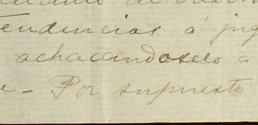 tendencias á jug
achacandoselo a
- Por supuesto